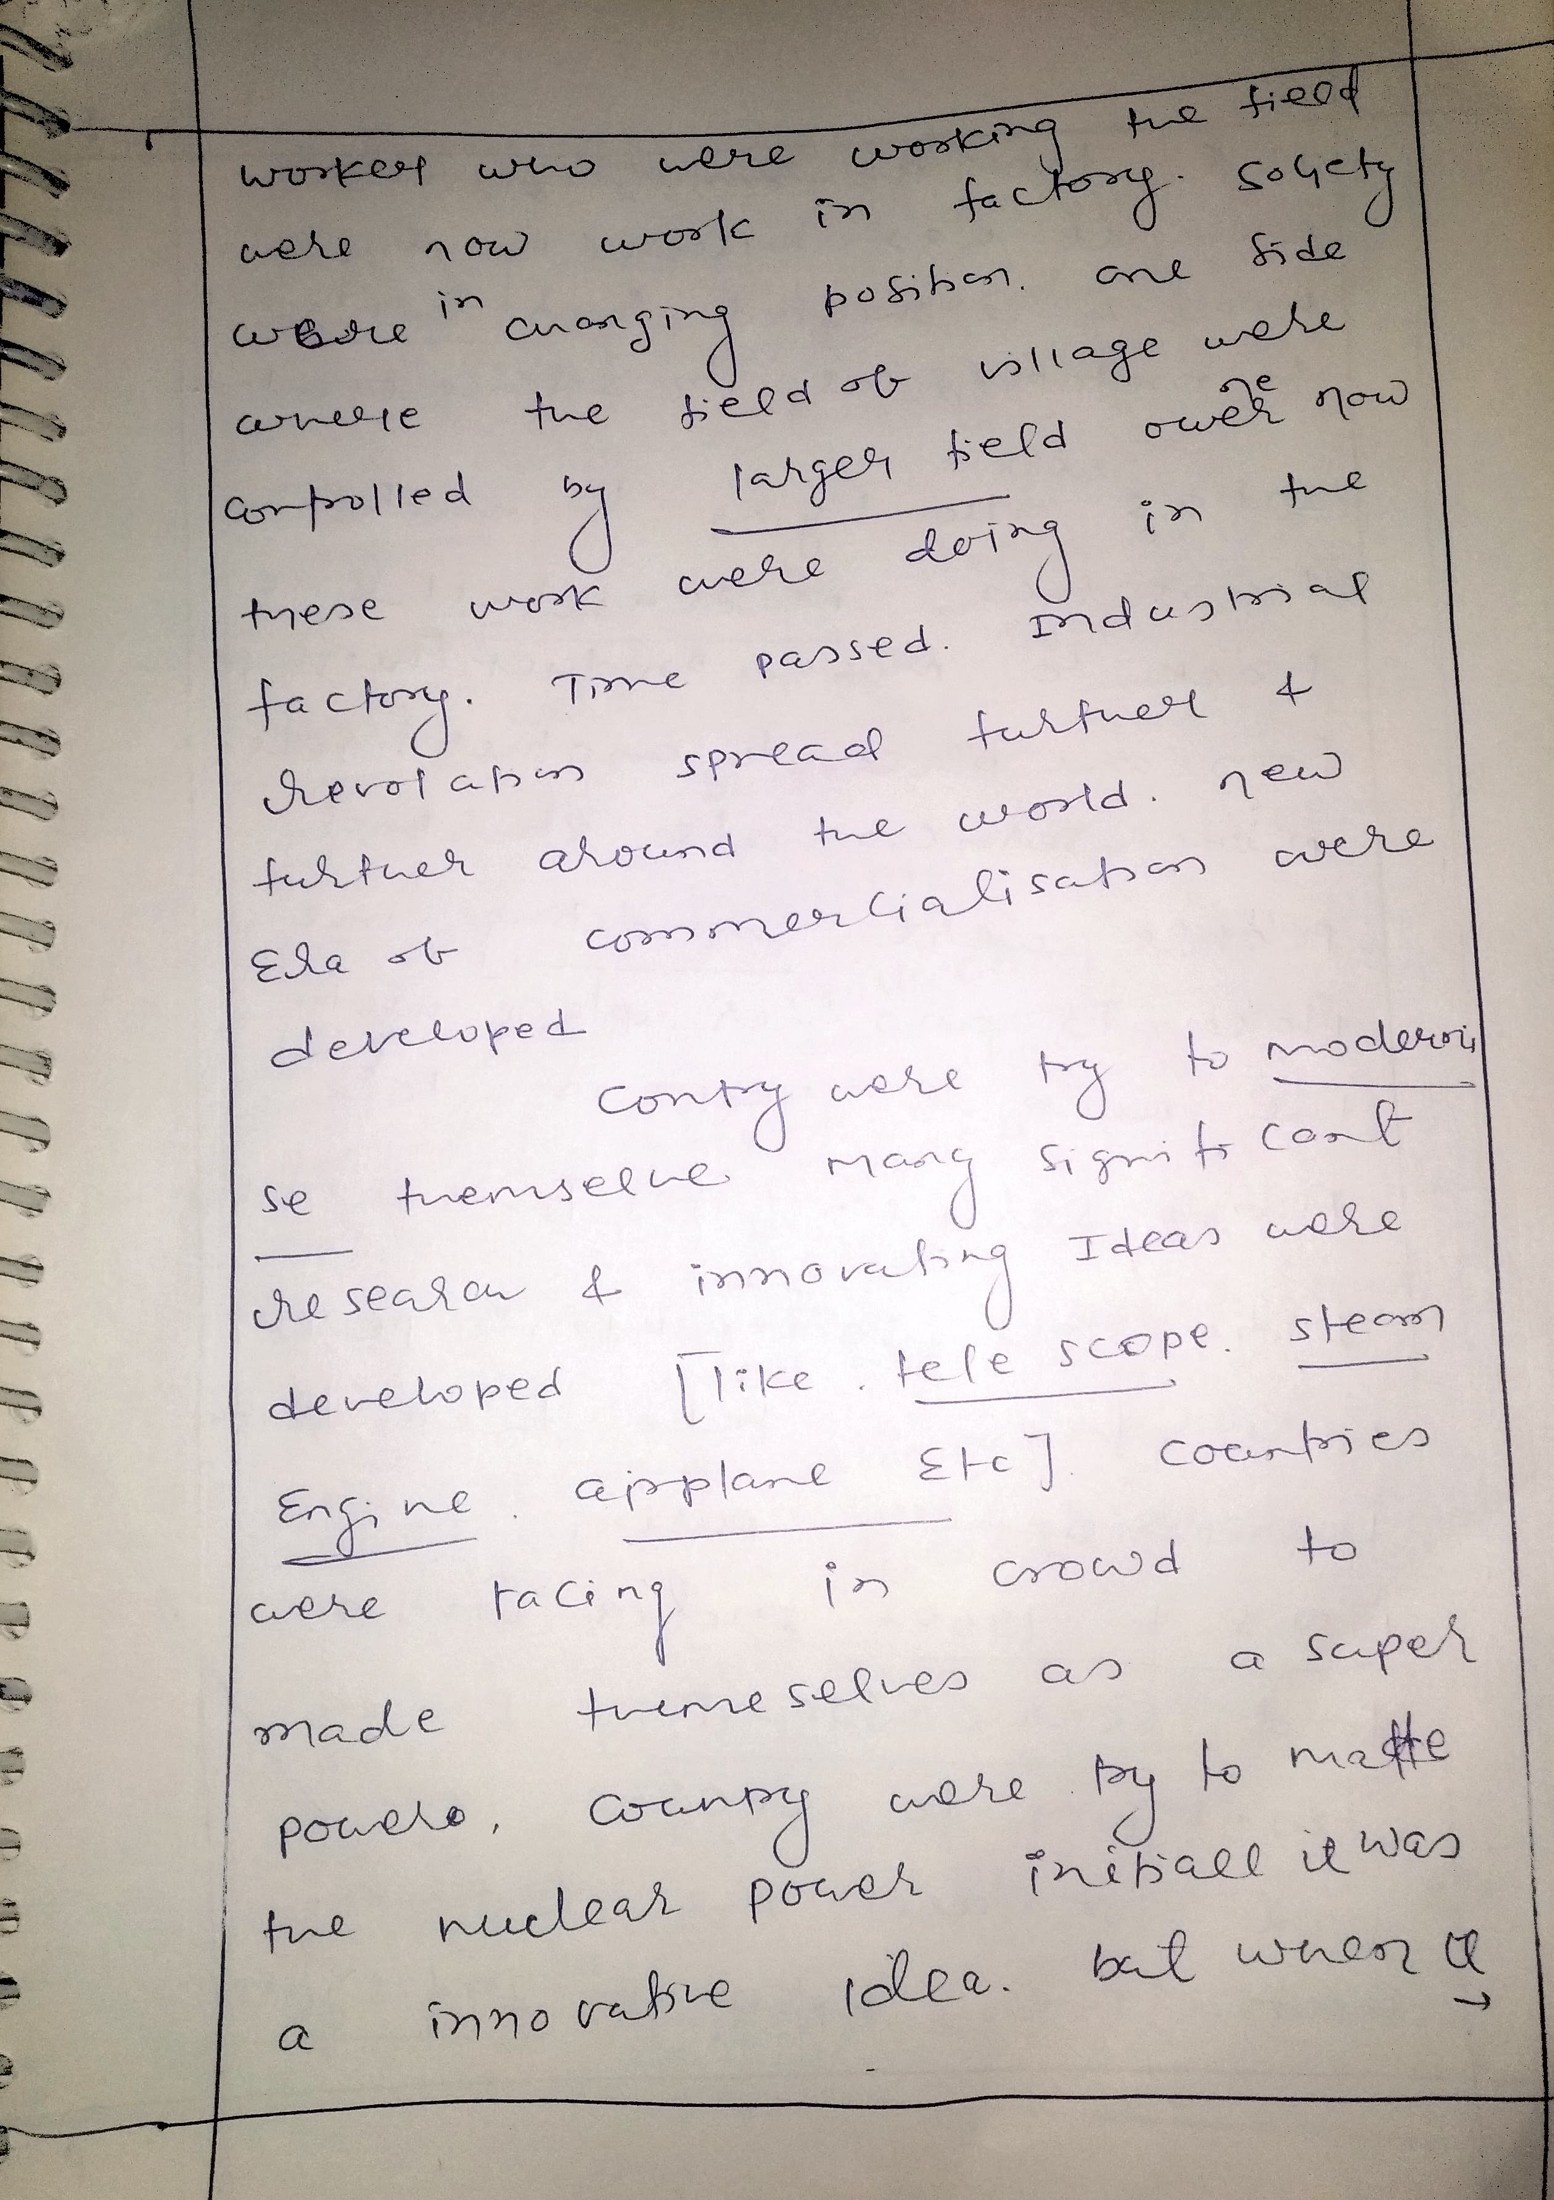 worker who were working the field
were now work in factory. Society
were in changing position. one side
where the field of village were
controlled by larger field ower now
these work were doing in the
factory. Time passed. Industrial
revolation spread further &
further around the world. new
Era of commercialisation were
developed
Contry were try to moderni
se themselve many significant
research & innovating Ideas were
developed [like. tele scope. steam
Engine. airplane Etc] countries
were racing in crowd to
made themeselves as a super
powers, country were try to make
the nuclear power initiall it was
a innovative idea. but when it →